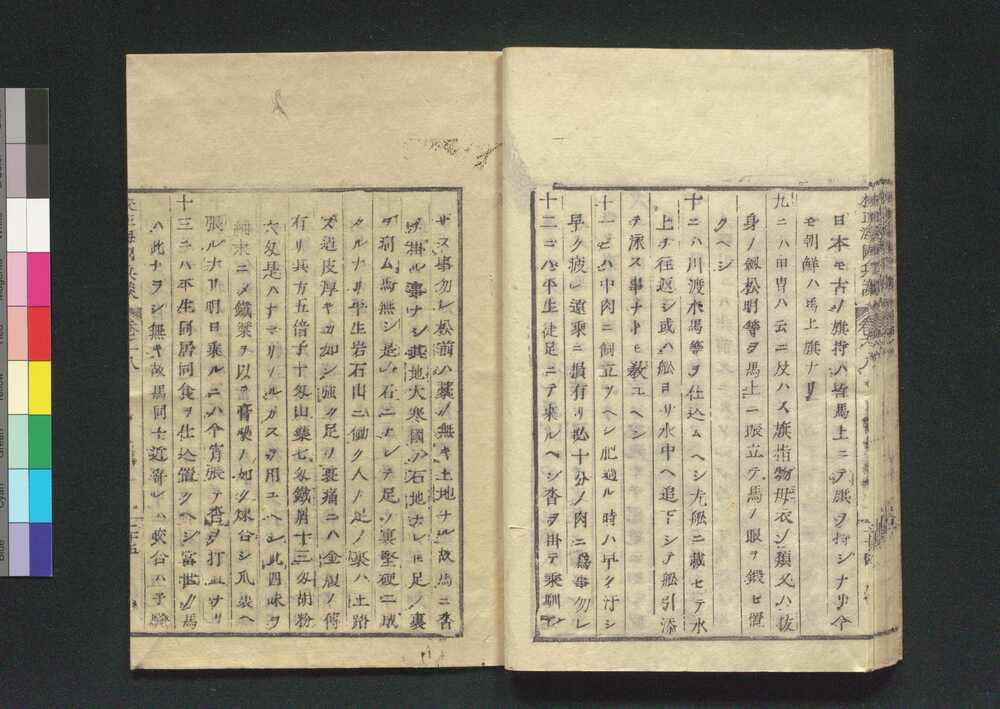 日本モ古ノ旗持ハ皆馬上ニテ旗ヲ持シナリ今
モ朝鮮ハ馬上旗ナリ
九ニハ甲冑ハ云ニ及ハス旗指物母衣ノ類又ハ抜
身ノ釼松明等ヲ馬上ニ振立テ馬ノ眼ヲ鍛ヒ置
クヘシ
十ニハ川渡水馬等ヲ仕込ムヘシ尤舩ニ載セテ水
上ヲ往返シ或ハ舩ヨリ水中ヘ追下シ又舩引添
テ泳ス事ナトモ教ユヘシ
十一ニハ中肉ニ飼立ツヘシ肥過ル時ハ早ク汗シ
早ク疲レ遠乗ニ損有リ必十分ノ肉ニ為事勿レ
十二ニハ平生徒足ニテ乗ルヘシ沓ヲ掛テ乗馴
サス事勿レ松前ハ藁ノ無キ土地ナル故馬ニ沓
ヲ掛ル事ナシ其地大寒國ノ石地ナレ𪜈足ノ裏
ヲ痛ム馬無シ是ハ石ニナレテ足ノ裏堅硬ニ成
タルナリ平生岩石山ニ働ク人ノ足ノ裏ハ土踏
ス迠皮厚キカ如シ強ク足ノ裏痛ニハ金履ノ傳
有リ其方五倍子十匁山藥七匁鐵屑十三匁胡粉
六匁是ハナマリノルカスヲ用ユヘシ此四味ヲ
細末ニメ鐵漿ヲ以膏藥ノ如ク煉合シ爪裏ヘ
張ルナリ明日乗ルニハ今宵張テ沓ヲ打
十三ニハ平生同居同食ヲ仕込置クヘシ當世ノ馬
ハ此ナラシ無キ故馬同士近寄レハ咬合